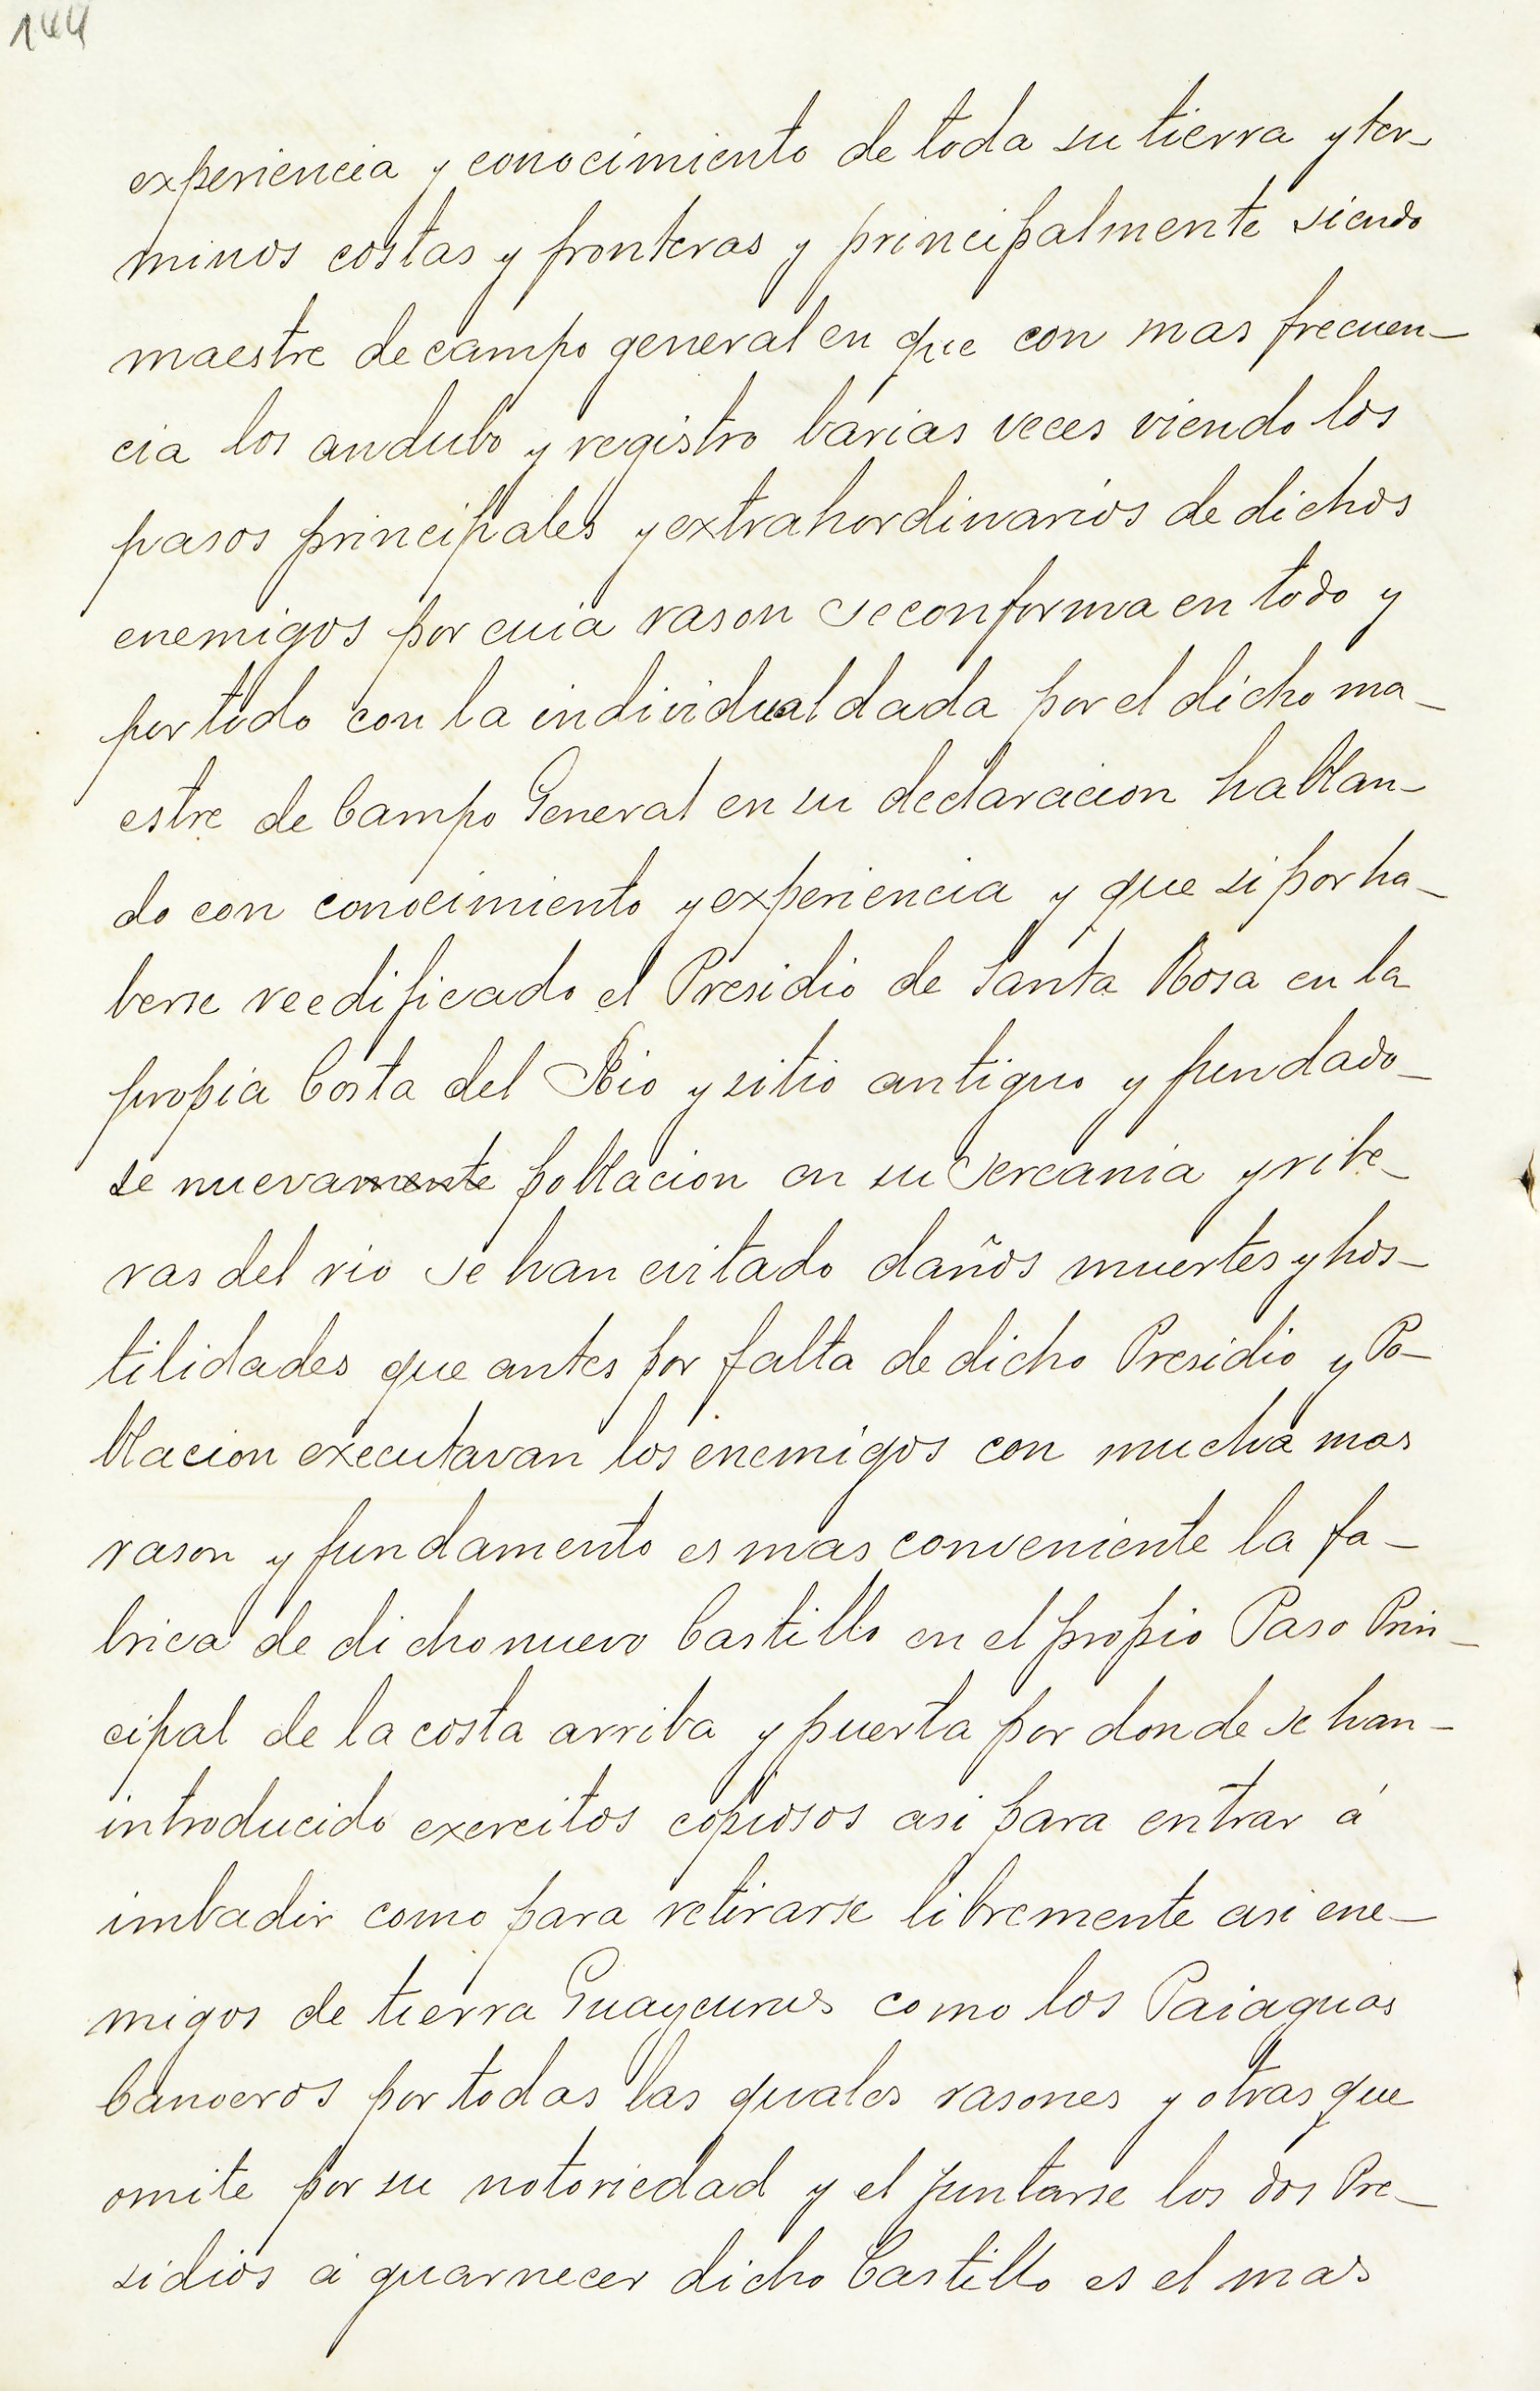 144
experiencia y conocimiento de toda su tierra y ter-
minos costas y fronteras y principalmente siendo
maestre de campo general en que con mas frecuen-
cia los andubo y registro barias veces viendo los
pasos principales y extrahordinarios de dichos
enemigos por cuia rason se conforma en todo y
por todo con la individual dada por el dicho ma-
estre de Campo General en su declaracion hablan-
do con conocimiento y experiencia y que si por ha-
berse reedificado el Presidio de Santa Rosa en la
propia Costa del Rio y sitio antiguo y fundado-
se nuevamente poblacion en su sercania y ribe-
ras del rio se han evitado daños muertes y hos-
tilidades que antes por falta de dicho Presidio y Po-
blacion executavan los enemigos con mucha mas
rason y fundamento es mas conveniente la fa-
brica de dicho nuevo Castillo en el propio Paso Prin-
cipal de la costa arriba y puerta por donde se han-
introducido exercitos copiosos asi para entrar á
imbadir como para retirarse libremente asi ene-
migos de tierra Guaycurus como los Paiaguas
Canoeros por todas las quales rasones y otras que
omite por su notoriedad y el juntarse los dos Pre-
sidios á guarnecer dicho Castillo es el mas